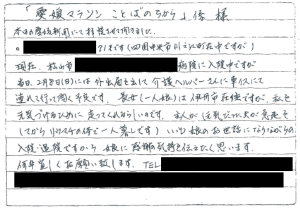 愛媛マラソン ことばのちから 係 様
本日愛媛新聞にて拝見させて頂きました。
71才です(四国中央市川之江町在中ですが)
現在、松山市 病院に入院中ですが
当日、2月8日(日)には外出届を出して介護ヘルパーさんに車イスにて
連れて行って頂く予定です。長女(一人娘)は伊丹市在住ですが、私を
元気づけるために走ってくれるらしいのです。主人が
してから 一人暮らしです) いつも娘のお世話になりながらの
入院生活ですから 娘に感謝の気持を伝えたく思います。
何卒宜しくお願い致します。TEL